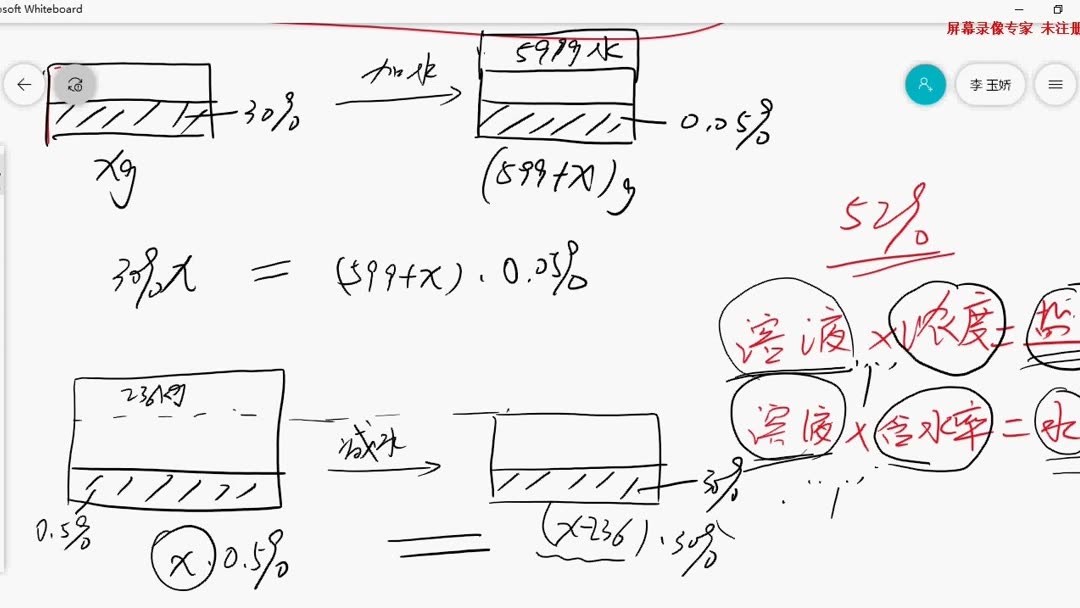 osoft Whiteboard
屏幕录像专家 未注册
李 玉娇
599g水
加水
30%
0.05%
xg
(599+x)g
52%
30%x = (599+x)·0.05%
溶液×浓度=盐
236kg
溶液×含水率=水
减水
30%
0.5%
x·0.5% = (x-236)·30%